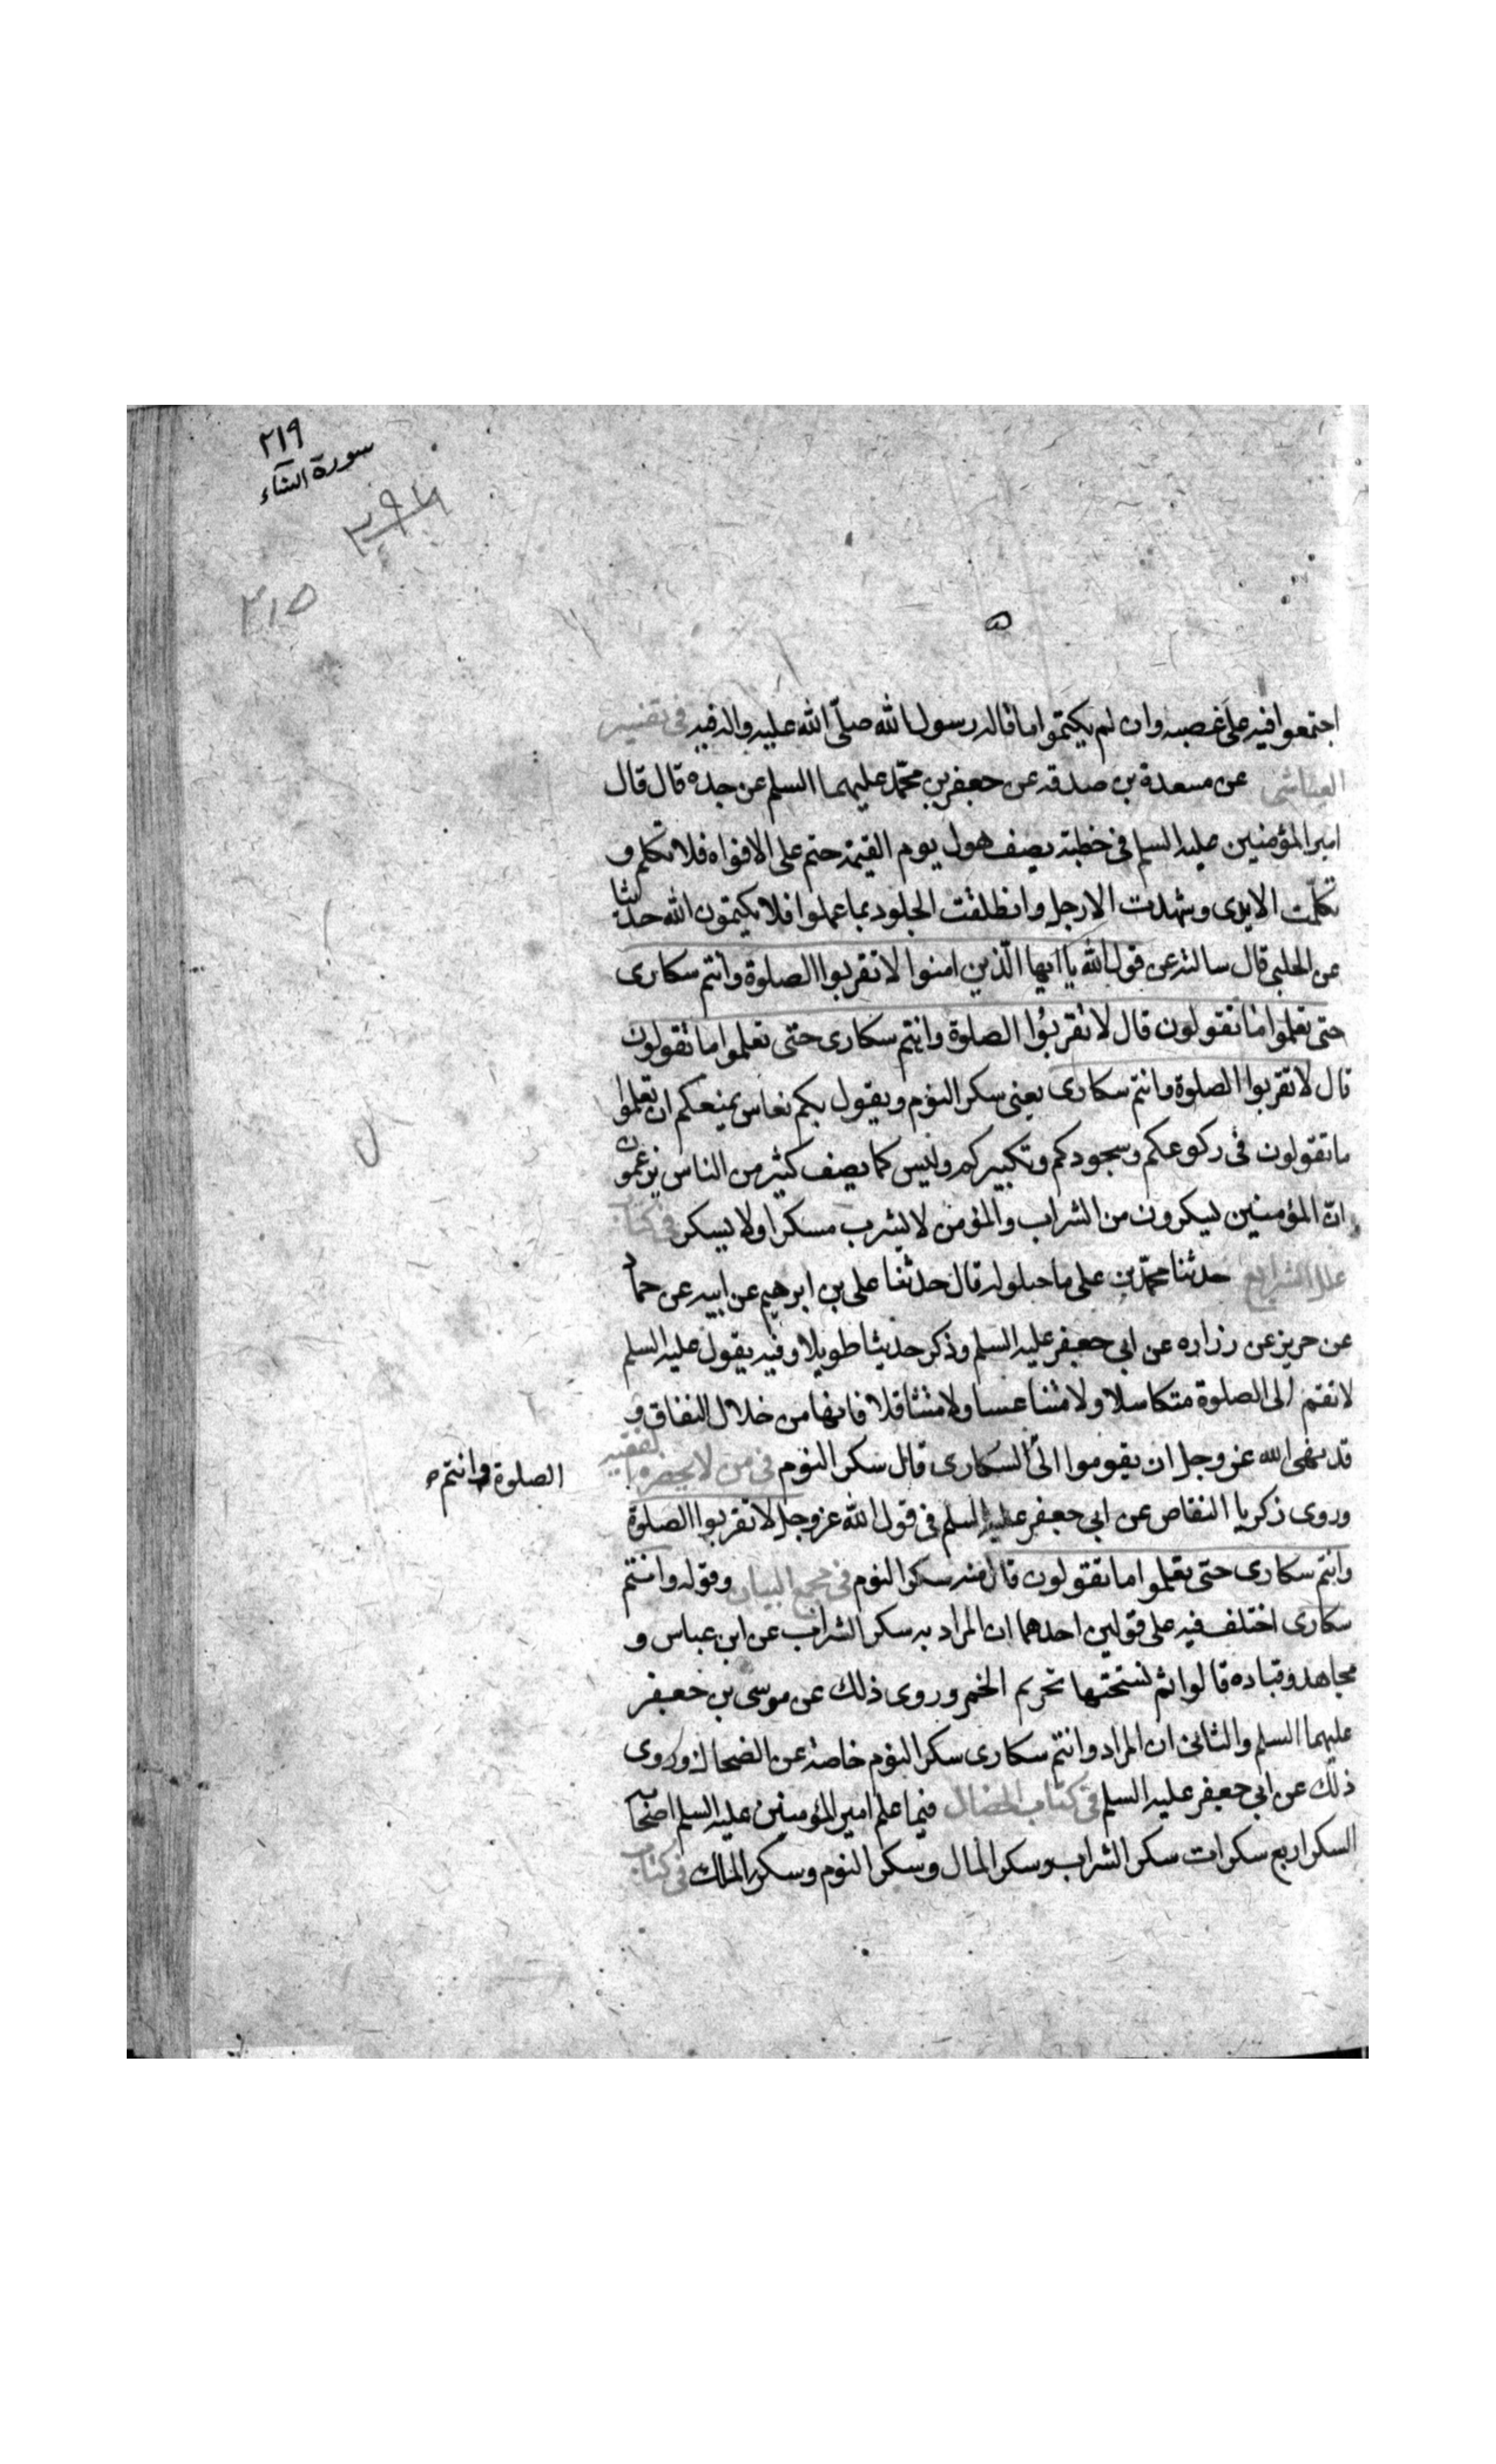 ٢١٩
سورة النساء
٢٩٦
٢١٥
اجتمعوا فيه على غصبه وان لم يكتموا ما قاله رسول الله صلّى الله عليه واله فيه فى تفسير
العياشى عن مسعدة بن صدقه عن جعفر بن محمّد عليهما السلم عن جده قال قال
امير المؤمنين عليه السلم فى خطبته يصف هول يوم القيمة ختم على الافواه فلا تكلم و
تكلّمت الايدى وشهدت الارجل وانطلقت الجلود بما عملوا فلا يكتمون الله حديثا
عن الحلبى قال سالته عن قول الله يا ايها الّذين امنوا لا تقربوا الصلوة وانتم سكارى
حتى تعلموا ما تقولون قال لا تقربوا الصلوة وانتم سكارى حتى تعلموا ما تقولون
قال لا تقربوا الصلوة وانتم سكارى يعنى سكر النوم ويقول بكم نعاس يمنعكم ان تعلموا
ما تقولون فى ركوعكم وسجودكم وتكبيركم وليس كما يصف كثير من الناس يزعمون
انّ المؤمنين يسكرون من الشراب والمؤمن لا يشرب مسكرا ولا يسكر فى كتاب
علل الشرايع حدثنا محمّد بن على ماجيلوله قال حدثنا على بن ابرهيم عن ابيه عن حماد
عن حريز عن زراره عن ابى جعفر عليه السلم وذكر حديثا طويلا وفيه يقول عليه السلم
لا تقم الى الصلوة متكاسلا ولا متناعسا ولا متثاقلا فانها من خلال النفاق و
قد نهى الله عز وجل ان يقوموا الى السكارى قال سكر النوم فى من لا يحضره الفقيه
الصلوة وانتم
وروى زكريا النقاض عن ابى جعفر عليه السلم فى قول الله عز وجل لا تقربوا الصلوة
وانتم سكارى حتى تعلموا ما تقولون قال منه سكر النوم فى مجمع البيان وقوله وانتم
سكارى اختلف فيه على قولين احدهما ان المراد به سكر الشراب عن ابن عباس و
مجاهد وقتاده قالوا ثم نسختها تحريم الخمر وروى ذلك عن موسى بن جعفر
عليهما السلم والثانى ان المراد وانتم سكارى سكر النوم خاصة عن الضحاك وروى
ذلك عن ابى جعفر عليه السلم فى كتاب الخصال فيما علم امير المؤمنين عليه السلم اصحابه
السكر اربع سكرات سكر الشراب وسكر المال وسكر النوم وسكر الملك فى كتاب